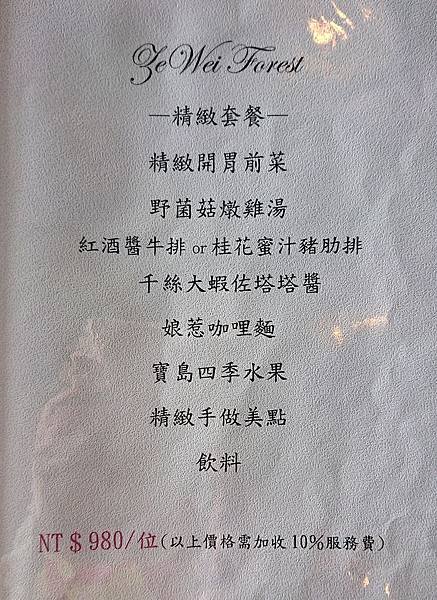 Ze Wei Forest
—精緻套餐—
精緻開胃前菜
野菌菇燉雞湯
紅酒醬牛排 or 桂花蜜汁豬肋排
千絲大蝦佐塔塔醬
娘惹咖哩麵
寶島四季水果
精緻手做美點
飲料
NT $ 980/位(以上價格需加收10%服務費)